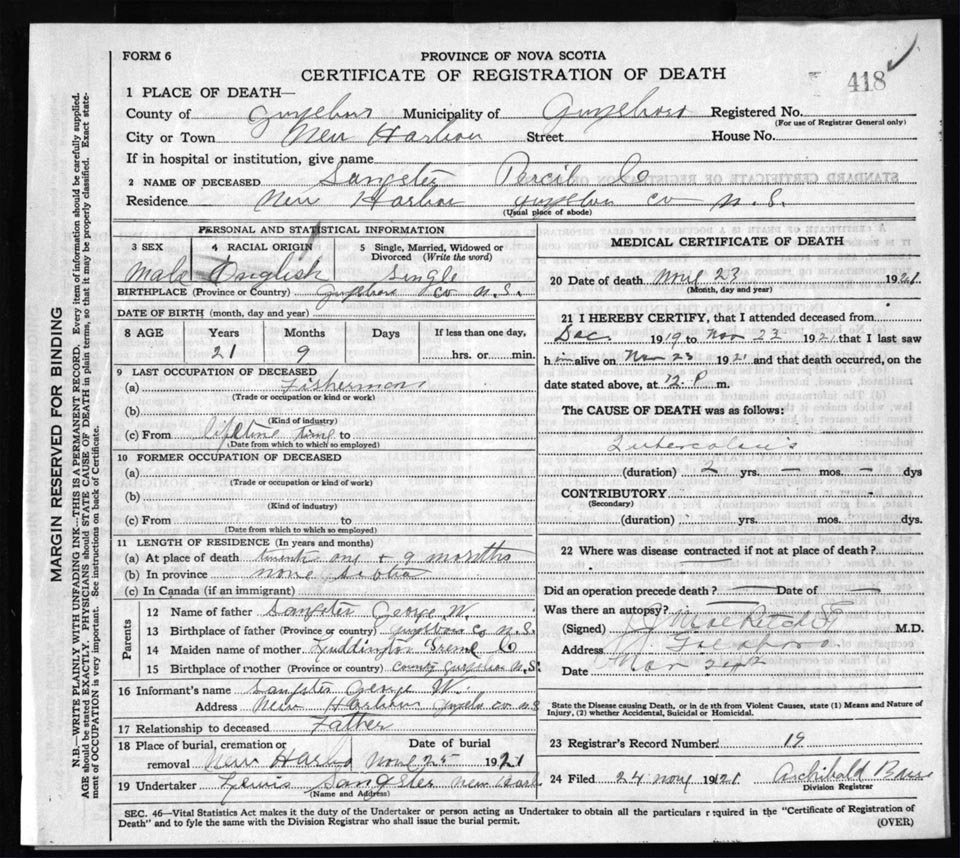 FORM 6
PROVINCE OF NOVA SCOTIA
CERTIFICATE OF REGISTRATION OF DEATH
418
1 PLACE OF DEATH—
County of Guysboro Municipality of Guysboro Registered No.
(For use of Registrar General only)
City or Town New Harbour Street House No.
If in hospital or institution, give name
2 NAME OF DECEASED Sangster Percib
Residence New Harbour Guysboro Co N.S.
(Usual place of abode)
PERSONAL AND STATISTICAL INFORMATION
3 SEX 4 RACIAL ORIGIN 5 Single, Married, Widowed or Divorced (Write the word)
Male English Single
BIRTHPLACE (Province or Country) Guysboro Co N.S.
DATE OF BIRTH (month, day and year)
8 AGE Years Months Days If less than one day,
21 9 hrs. or min.
9 LAST OCCUPATION OF DECEASED
(a) Fisherman
(Trade or occupation or kind or work)
(b)
(Kind of industry)
(c) From lifetime time to
(Date from which to which so employed)
10 FORMER OCCUPATION OF DECEASED
(a)
(Trade or occupation or kind of work)
(b)
(Kind of industry)
(c) From to
(Date from which to which so employed)
11 LENGTH OF RESIDENCE (In years and months)
(a) At place of death twenty one + 9 months
(b) In province nova scotia
(c) In Canada (if an immigrant)
Parents
12 Name of father Sangster George W.
13 Birthplace of father (Province or country) Guysboro Co N.S.
14 Maiden name of mother Luddington
15 Birthplace of mother (Province or country) County Guysboro N.S.
16 Informant's name Sangster George W.
Address New Harbour Guysboro Co N.S.
17 Relationship to deceased Father
18 Place of burial, cremation or removal Date of burial
New Harbour Nov 25 1921
19 Undertaker Lewis Sangster New Harb
(Name and Address)
MEDICAL CERTIFICATE OF DEATH
20 Date of death Nov 23 1921
(Month, day and year)
21 I HEREBY CERTIFY, that I attended deceased from
Dec. 1919 to Nov 23 1921 that I last saw
him alive on Nov 23 1921 and that death occurred, on the
date stated above, at 12.P m.
The CAUSE OF DEATH was as follows:
Tuberculosis
(duration) 2 yrs. — mos. — dys
CONTRIBUTORY
(Secondary)
(duration) yrs. mos. dys.
22 Where was disease contracted if not at place of death?
Did an operation precede death? — Date of —
Was there an autopsy?
(Signed) M.D.
Address Goldboro
Date Nov 24th
State the Disease causing Death, or in death from Violent Causes, state (1) Means and Nature of
Injury, (2) whether Accidental, Suicidal or Homicidal.
23 Registrar's Record Number 19
24 Filed 24 Nov 1921 Archibald
Division Registrar
SEC. 46—Vital Statistics Act makes it the duty of the Undertaker or person acting as Undertaker to obtain all the particulars required in the "Certificate of Registration of
Death" and to fyle the same with the Division Registrar who shall issue the burial permit. (OVER)
MARGIN RESERVED FOR BINDING
N.B.—WRITE PLAINLY WITH UNFADING INK—THIS IS A PERMANENT RECORD. Every item of information should be carefully supplied.
AGE should be stated EXACTLY. PHYSICIANS should STATE CAUSE OF DEATH in plain terms, so that it may be properly classified. Exact state-
ment of OCCUPATION is very important. See instructions on back of Certificate.